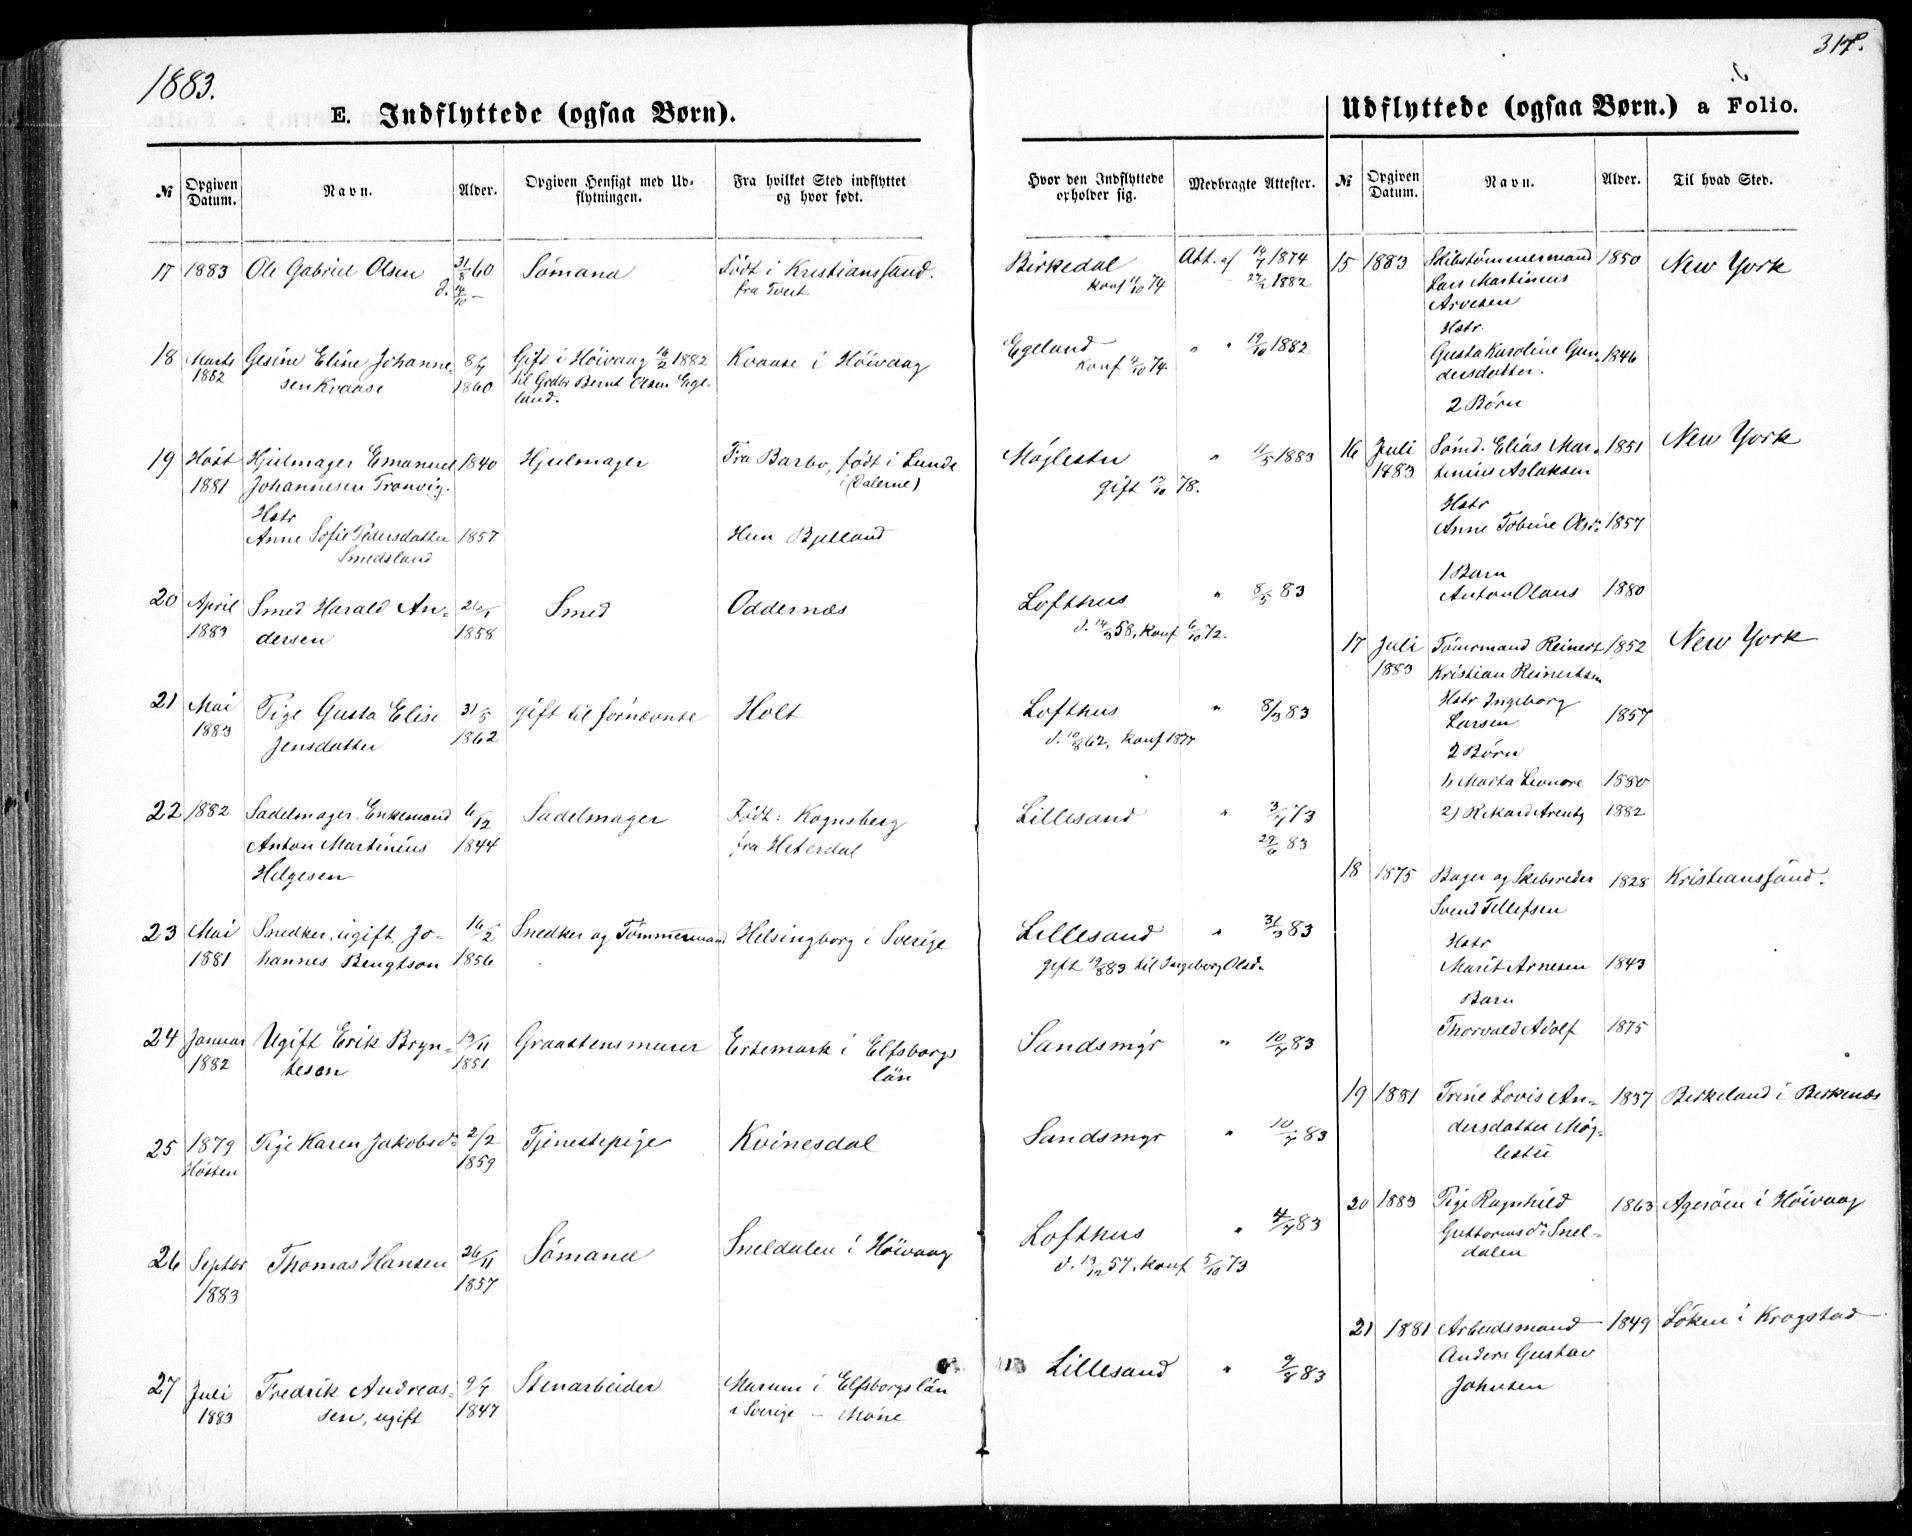 1883.
317.
E. Indflyttede (ogsaa Børn).
Udflyttede (ogsaa Børn.) a Folio.
№ Opgiven Datum. Navn. Alder. Opgiven Hensigt med Udflytningen. Fra hvilket Sted indflyttet og hvor født. Hvor den Indflyttede opholder sig. Medbragte Attester.
№ Opgiven Datum. Navn. Alder. Til hvad Sted.
17 1883 Ole Gabriel Olsen 31/8 60 Sømand Født i Kristianssand. Birkedal Att. af 14/7 1874
d. 14/10 – fra Tveit konf 11/10 74 27/2 1882
18 Marts Gesine Eline Johanne- 8/7 Gift i Høivaag 16/2 1882 Kvaase i Høivaag Egeland " " 19/10 1882
1882 sen Kvaase 1860 til Grdbr Bernt Olsen Ege- konf 4/10 74
land.
19 Høst Hjulmager Emanuel 1840 Hjulmager Fra Barbo, født i Lunde Møglestu " 11/5 1883
1881 Johannesen Tronvig. i (Dalerne) gift 17/10 78.
Hstr
Anne Sofie Pedersdatter 1857 Hun Bjelland
Smedsland
20 April Smed Harald An- 26/1 Smed Oddernæs Lofthus " 8/5 83
1883 dersen 1858 d. 14/3 58, konf 6/10 72.
21 Mai Pige Gusta Elise 31/5 gift til fornævnte Holt Lofthus " 8/3 83
1883 Jensdatter 1862 d. 10/8 62, konf 1877
22 1882 Sadelmager. Enkemand 6/12 Sadelmager Født: Kognsberg Lillesand " 3/7 73
Anton Martinius 1844 fra Hiterdal 29/6 83
Helgesen
23 Mai Snedker, ugift, Jo- 16/2 Snedker og Tømmermand Helsingborg i Sverige Lillesand " 31/3 83
1881 hannes Bengtson 1856 gift 19/8 83 til Ingeborg Olsd.
24 Januar Ugift Erik Bryn- 13/11 Graastensmurer Ertemark i Elfsborgs Sandsmyr " 10/7 83
1882 tesen 1851 län
25 1879 Pige Karen Jakobsdr 2/2 Tjenestepige Kvinesdal Sandsmyr " 10/7 83
Høsten 1859
26 Septbr Thomas Hansen 26/11 Sømand Sneldalen i Høivaag Lofthus " 4/7 83
1883 1857 d. 13/12 57, konf 5/10 73
27 Juli Fredrik Andreas- 9/7 Stenarbeider Marum i Elfsborgslän Lillesand " 9/8 83
1883 sen, ugift 1847 i Sverige – Mone
15 1883 Skibstømmermand 1850 New York
Lars Martinius
Arvesen
Hstr.
Gusta Karoline Gun- 1846
dersdatter.
2 Børn
16 Juli Sømd. Elias Mar- 1851 New York
1883 tinius Aslaksen
Hstr
Anne Tobine Olsdr 1857
1 Barn
Anton Olaus 1880
17 Juli Tømrmand Reinert 1852 New York
1883 Kristian Reinertsen
Hstr Ingeborg
Larsen 1857
2 Børn
1, Marta Leonore 1880
2) Rikard Arentz 1882
18 1875 Bager og Skibsreder 1828 Kristianssand.
Svend Tellefsen
Hstr
Marit Arnesen 1843
Barn
Thorvald Adolf 1875
19 1881 Trine Lovis An- 1837 Birkeland i Birkenæs
dersdatter Møg-
lestu
20 1883 Pige Ragnhild 1863 Agerøen i Høivaag
Guttormsdr Snel-
dalen
21 1881 Arbeidsmand 1849 Løken i Krogstad
Anders Gustav
Johnsen